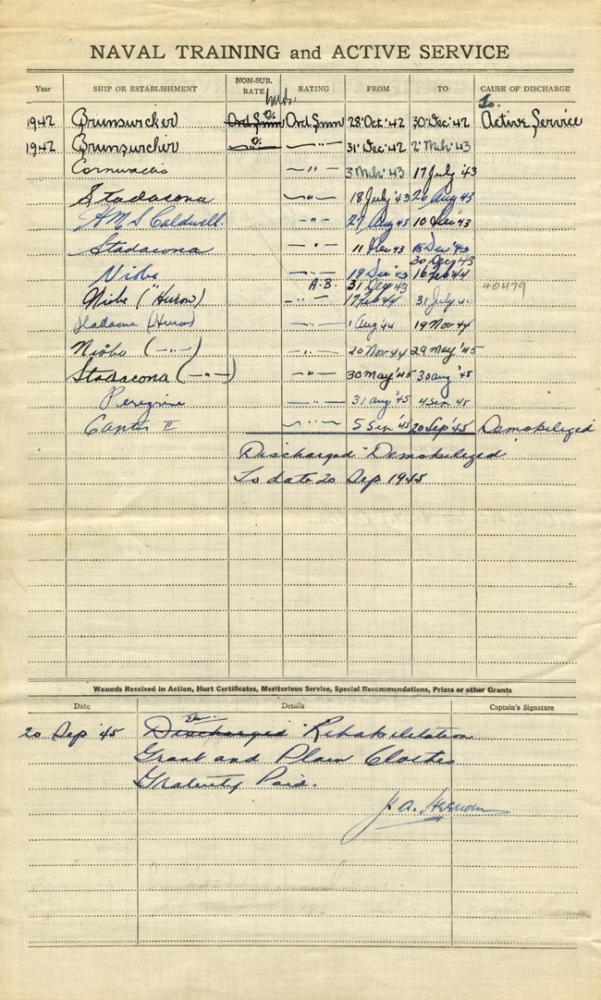 NAVAL TRAINING and ACTIVE SERVICE
Year SHIP OR ESTABLISHMENT NON-SUB. RATE RATING FROM TO CAUSE OF DISCHARGE
1942 Brunswicker Ord Smn Ord Smn 28 Oct '42 30 Dec '42 Active Service
1942 Brunswicker 31 Dec 42 2 Mch '43
Cornwallis 3 Mch '43 17 July '43
Stadacona 18 July '43 26 Aug 43
HMS Caldwell. 27 Aug 43 10 Dec 43
Stadacona 11 Dec 43 18 Dec '43
30 Dec 43
Niobe 19 Dec 43 16 Feb 44
A.B. 31 Dec 43 40479
Niobe ("Huron) 17 Feb 44 31 July 44
Stadacona (Huron) 1 Aug 44 19 Nov 44
Niobe (-"-) 20 Nov 44 29 May '45
Stadacona (-"-) 30 May '45 30 Aug '45
Peregrine 31 Aug '45 4 Sep 45
Captor II 5 Sep '45 20 Sep '45 Demobilized
Discharged "Demobilized
To date 20 Sep 1945
Wounds Received in Action, Hurt Certificates, Meritorious Service, Special Recommendations, Prizes or other Grants
Date Details Captain's Signature
20 Sep '45 Discharged Rehabilitation
Grant and Plain Clothes
Gratuity Paid.
J. A.